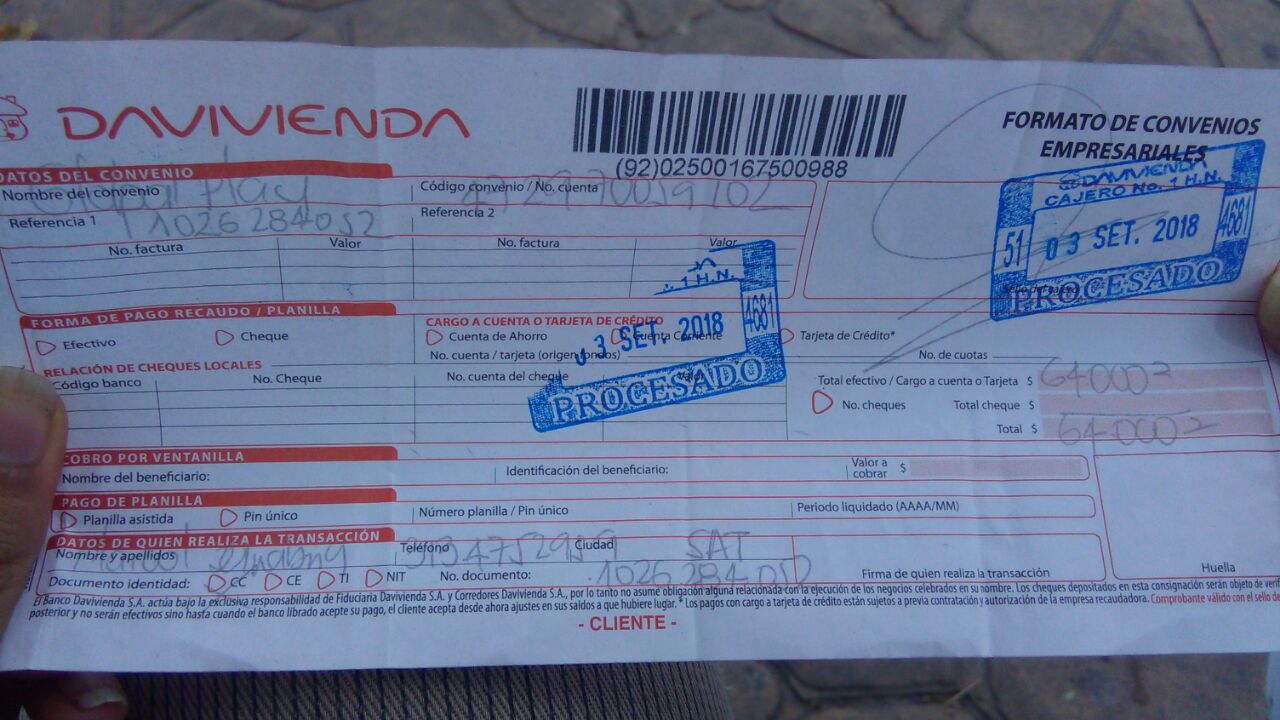 DAVIVIENDA
(92)02500167500988
FORMATO DE CONVENIOS
EMPRESARIALES
DAVIVIENDA
CAJERO No. 1 H.N.
51 03 SET. 2018 4681
PROCESADO
DATOS DEL CONVENIO
Nombre del convenio
Play
Código convenio / No. cuenta
Referencia 1
1026284052
Referencia 2
No. factura Valor No. factura Valor
. 1 H.N.
03 SET. 2018 4681
PROCESADO
FORMA DE PAGO RECAUDO / PLANILLA
Efectivo Cheque
CARGO A CUENTA O TARJETA DE CRÉDITO
Cuenta de Ahorro Cuenta Corriente Tarjeta de Crédito*
No. cuenta / tarjeta (origen fondos)
No. de cuotas
RELACIÓN DE CHEQUES LOCALES
Código banco No. Cheque No. cuenta del cheque Valor
Total efectivo / Cargo a cuenta o Tarjeta $ 64000
No. cheques Total cheque $
Total $ 64000
COBRO POR VENTANILLA
Nombre del beneficiario: Identificación del beneficiario: Valor a cobrar $
PAGO DE PLANILLA
Planilla asistida Pin único Número planilla / Pin único Periodo liquidado (AAAA/MM)
DATOS DE QUIEN REALIZA LA TRANSACCIÓN
Nombre y apellidos Teléfono Ciudad
Documento identidad: CC CE TI NIT No. documento: 1026284052 Firma de quien realiza la transacción Huella
El Banco Davivienda S.A. actúa bajo la exclusiva responsabilidad de Fiduciaria Davivienda S.A. y Corredores Davivienda S.A., por lo tanto no asume obligación alguna relacionada con la ejecución de los negocios celebrados en su nombre. Los cheques depositados en esta consignación serán objeto de
posterior y no serán efectivos sino hasta cuando el banco librado acepte su pago, el cliente acepta desde ahora ajustes en sus saldos a que hubiere lugar. * Los pagos con cargo a tarjeta de crédito están sujetos a previa contratación y autorización de la empresa recaudadora. Comprobante válido con el sello de
- CLIENTE -